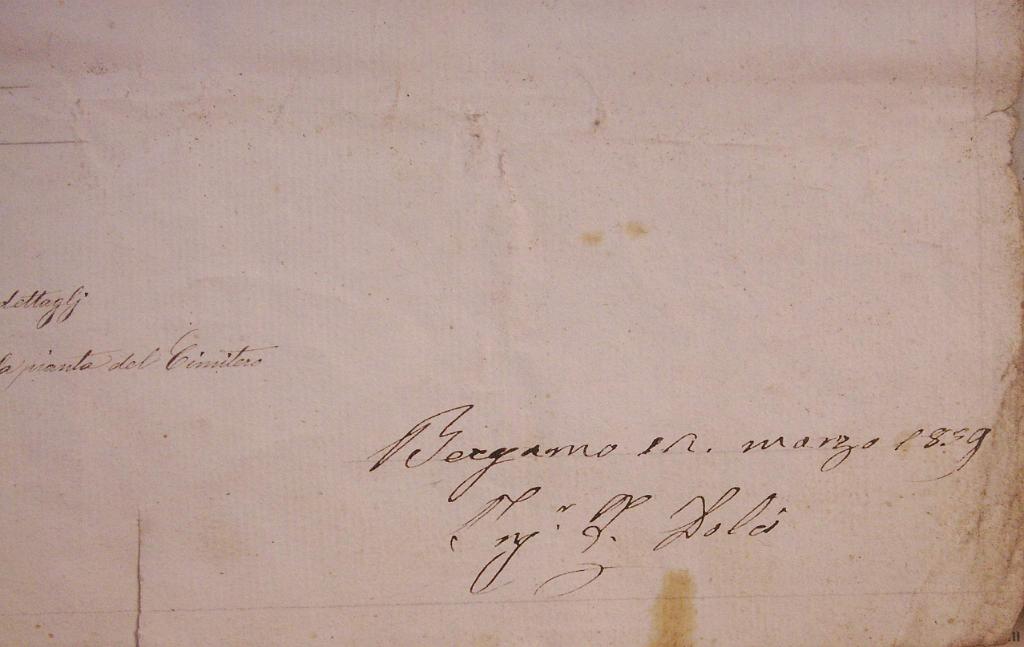 dettaglj
la pianta del Cimitero
Bergamo 12. marzo 1839
Ing.r F. Dolci